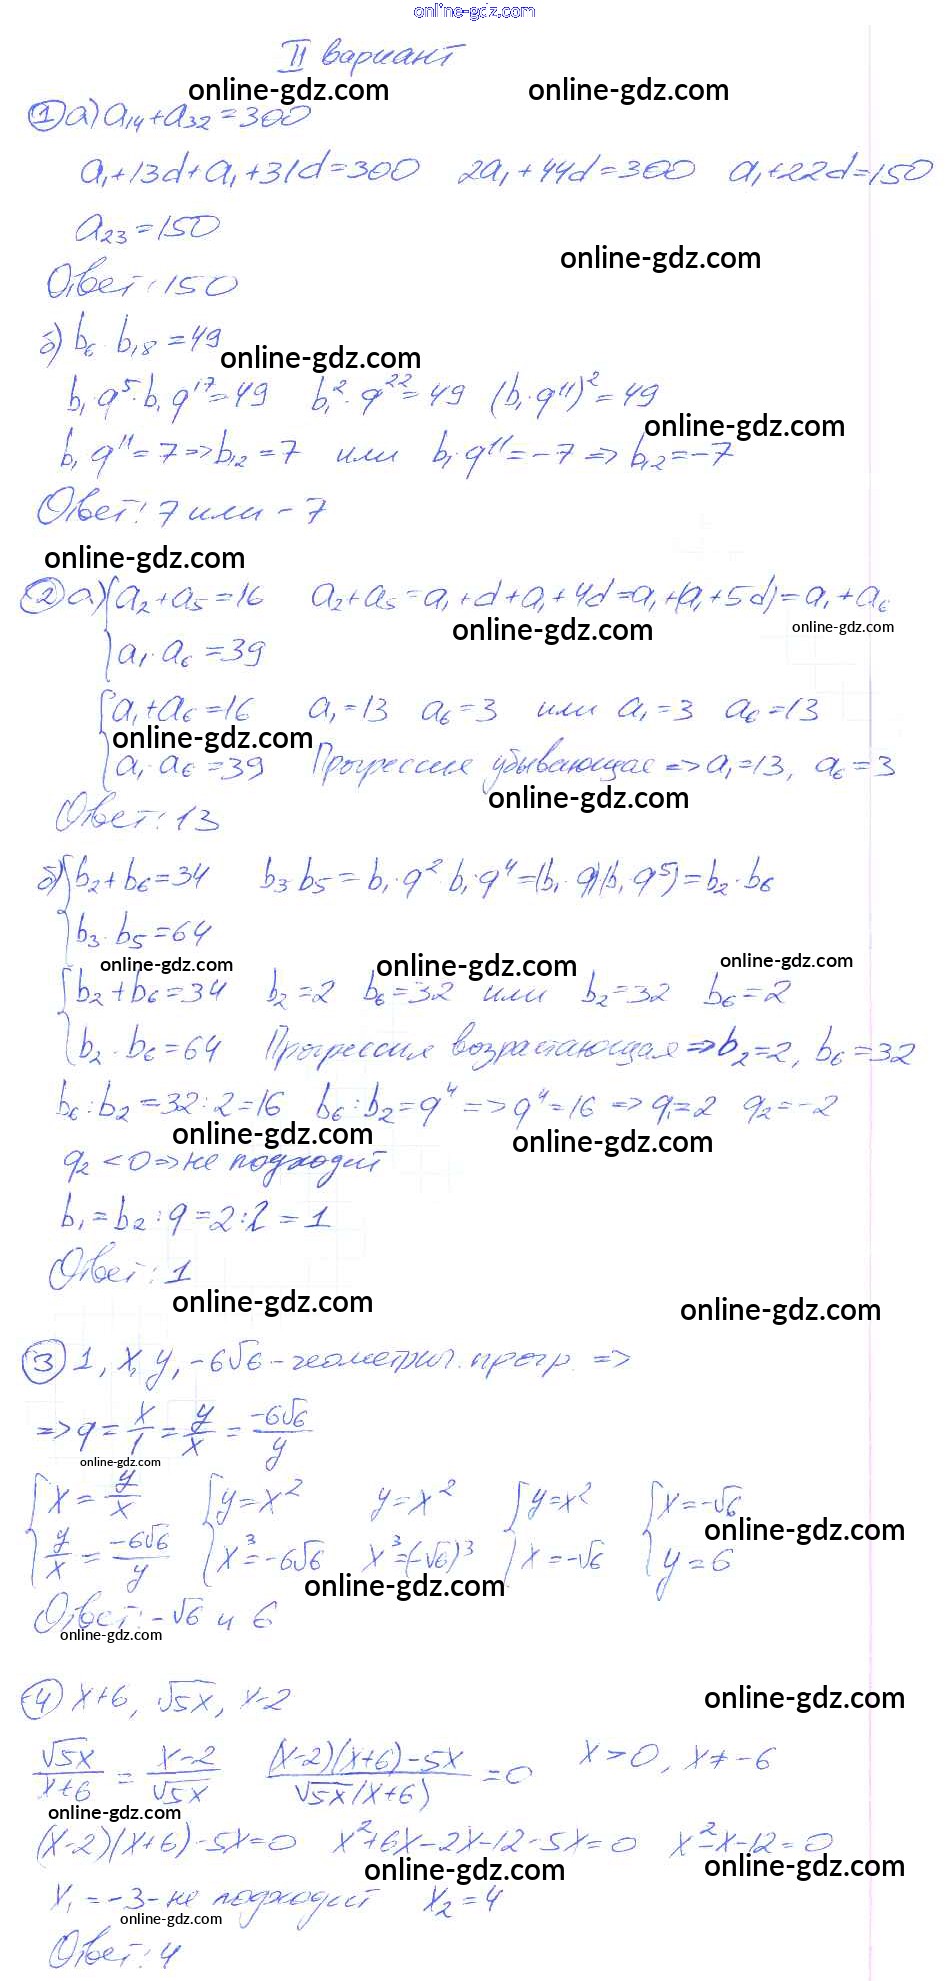 online-gdz.com
II вариант
online-gdz.com online-gdz.com
① а) a₁₄+a₃₂=300
a₁+13d+a₁+31d=300 2a₁+44d=300 a₁+22d=150
a₂₃=150
online-gdz.com
Ответ: 150
б) b₆·b₁₈=49
online-gdz.com
b₁·q⁵·b₁q¹⁷=49 b₁²·q²²=49 (b₁·q¹¹)²=49
online-gdz.com
b₁q¹¹=7=>b₁₂=7 или b₁·q¹¹=-7=>b₁₂=-7
Ответ: 7 или -7
online-gdz.com
② а) {a₂+a₅=16 a₂+a₅=a₁+d+a₁+4d=a₁+(a₁+5d)=a₁+a₆
online-gdz.com online-gdz.com
a₁·a₆=39
{a₁+a₆=16 a₁=13 a₆=3 или a₁=3 a₆=13
online-gdz.com
a₁·a₆=39 Прогрессия убывающая=>a₁=13, a₆=3
online-gdz.com
Ответ: 13
б) {b₂+b₆=34 b₃·b₅=b₁·q²·b₁·q⁴=(b₁·q)(b₁·q⁵)=b₂·b₆
b₃·b₅=64
online-gdz.com online-gdz.com online-gdz.com
{b₂+b₆=34 b₂=2 b₆=32 или b₂=32 b₆=2
b₂·b₆=64 Прогрессия возрастающая=>b₂=2, b₆=32
b₆:b₂=32:2=16 b₆:b₂=q⁴=>q⁴=16=>q₁=2 q₂=-2
online-gdz.com online-gdz.com
q₂<0=>не подходит
b₁=b₂:q=2:2=1
Ответ: 1
online-gdz.com online-gdz.com
③ 1, x, y, -6√6 - геометрич. прогр. =>
=>q=x/1=y/x=-6√6/y
online-gdz.com
{x=y/x {y=x² y=x² {y=x² {x=-√6
online-gdz.com
y/x=-6√6/y x³=-6√6 x³=(-√6)³ x=-√6 y=6
online-gdz.com
Ответ: -√6 и 6
online-gdz.com
④ x+6, √5x, x-2
online-gdz.com
√5x/x+6=x-2/√5x (x-2)(x+6)-5x/√5x(x+6)=0 x>0, x≠-6
online-gdz.com
(x-2)(x+6)-5x=0 x²+6x-2x-12-5x=0 x²-x-12=0
online-gdz.com online-gdz.com
x₁=-3-не подходит x₂=4
online-gdz.com
Ответ: 4